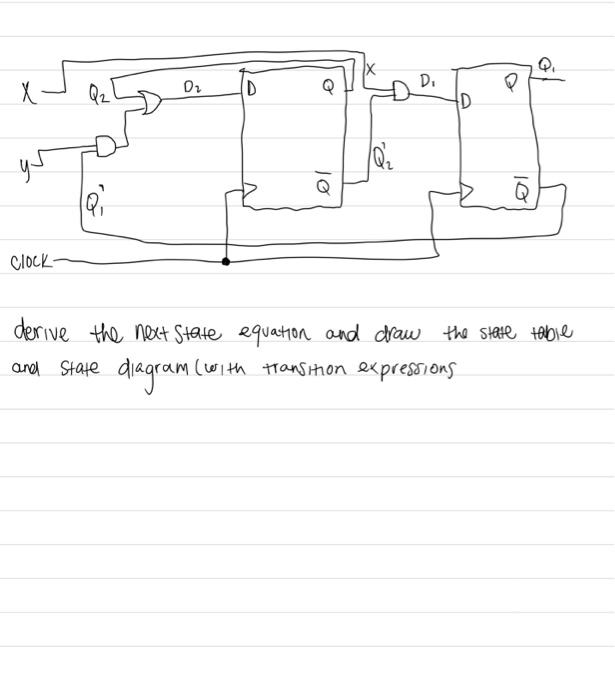 Q₁
X
Q₂
D₂
D
Q
X
D₁
D
Q
y
Q₁'
Q̅
Q₂'
Q̅
clock
derive the next state equation and draw the state table
and state diagram (with transition expressions